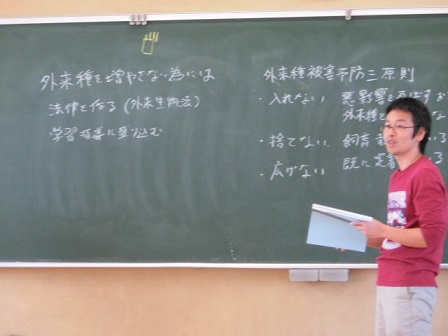 外来種を増やさない為には
法律を作る(外来生物法)
学習
外来種被害予防三原則
・入れない 悪影響を
外来種
・捨てない 飼育
・広げない 既に定着